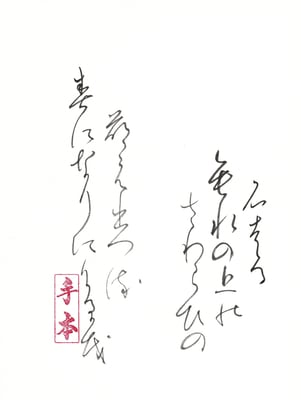 石走る
垂水の上の
さわらひの
萌え出つる
春になりにけるかも
手本